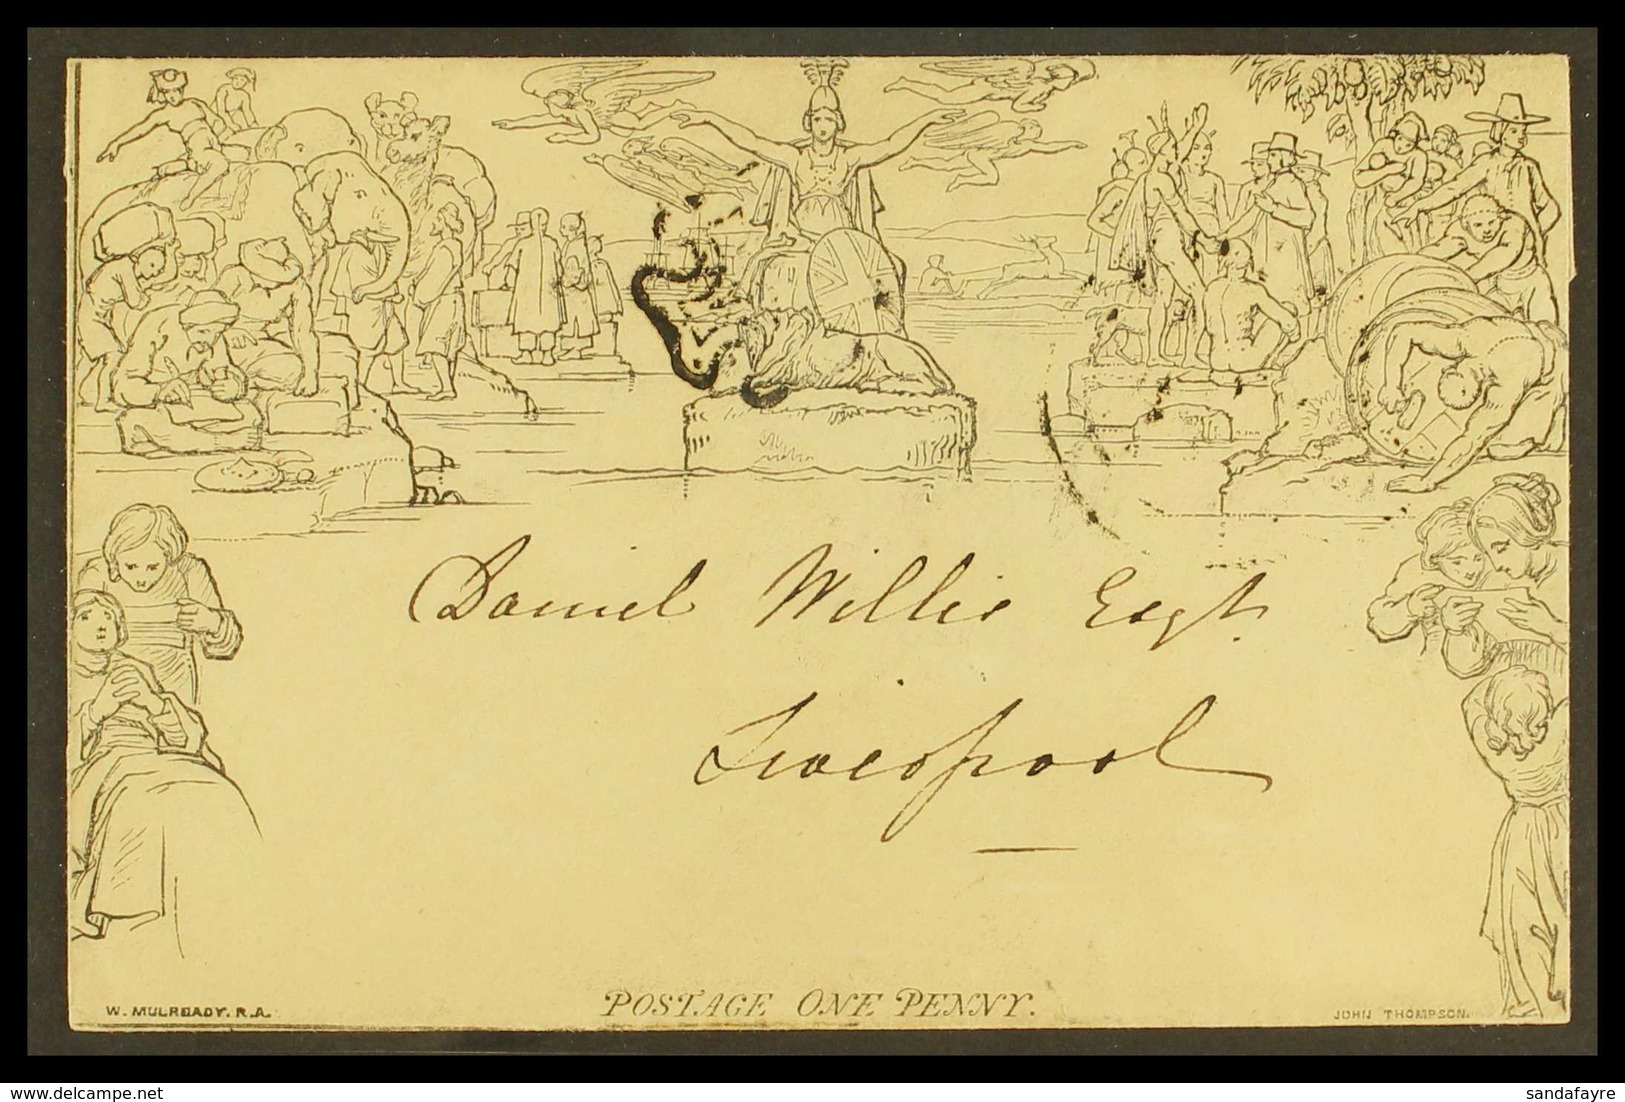 Daniel Willis Esqr.
Liverpool
W. MULREADY. R.A.
POSTAGE ONE PENNY.
JOHN THOMPSON.
delcampe.net
sandafayre